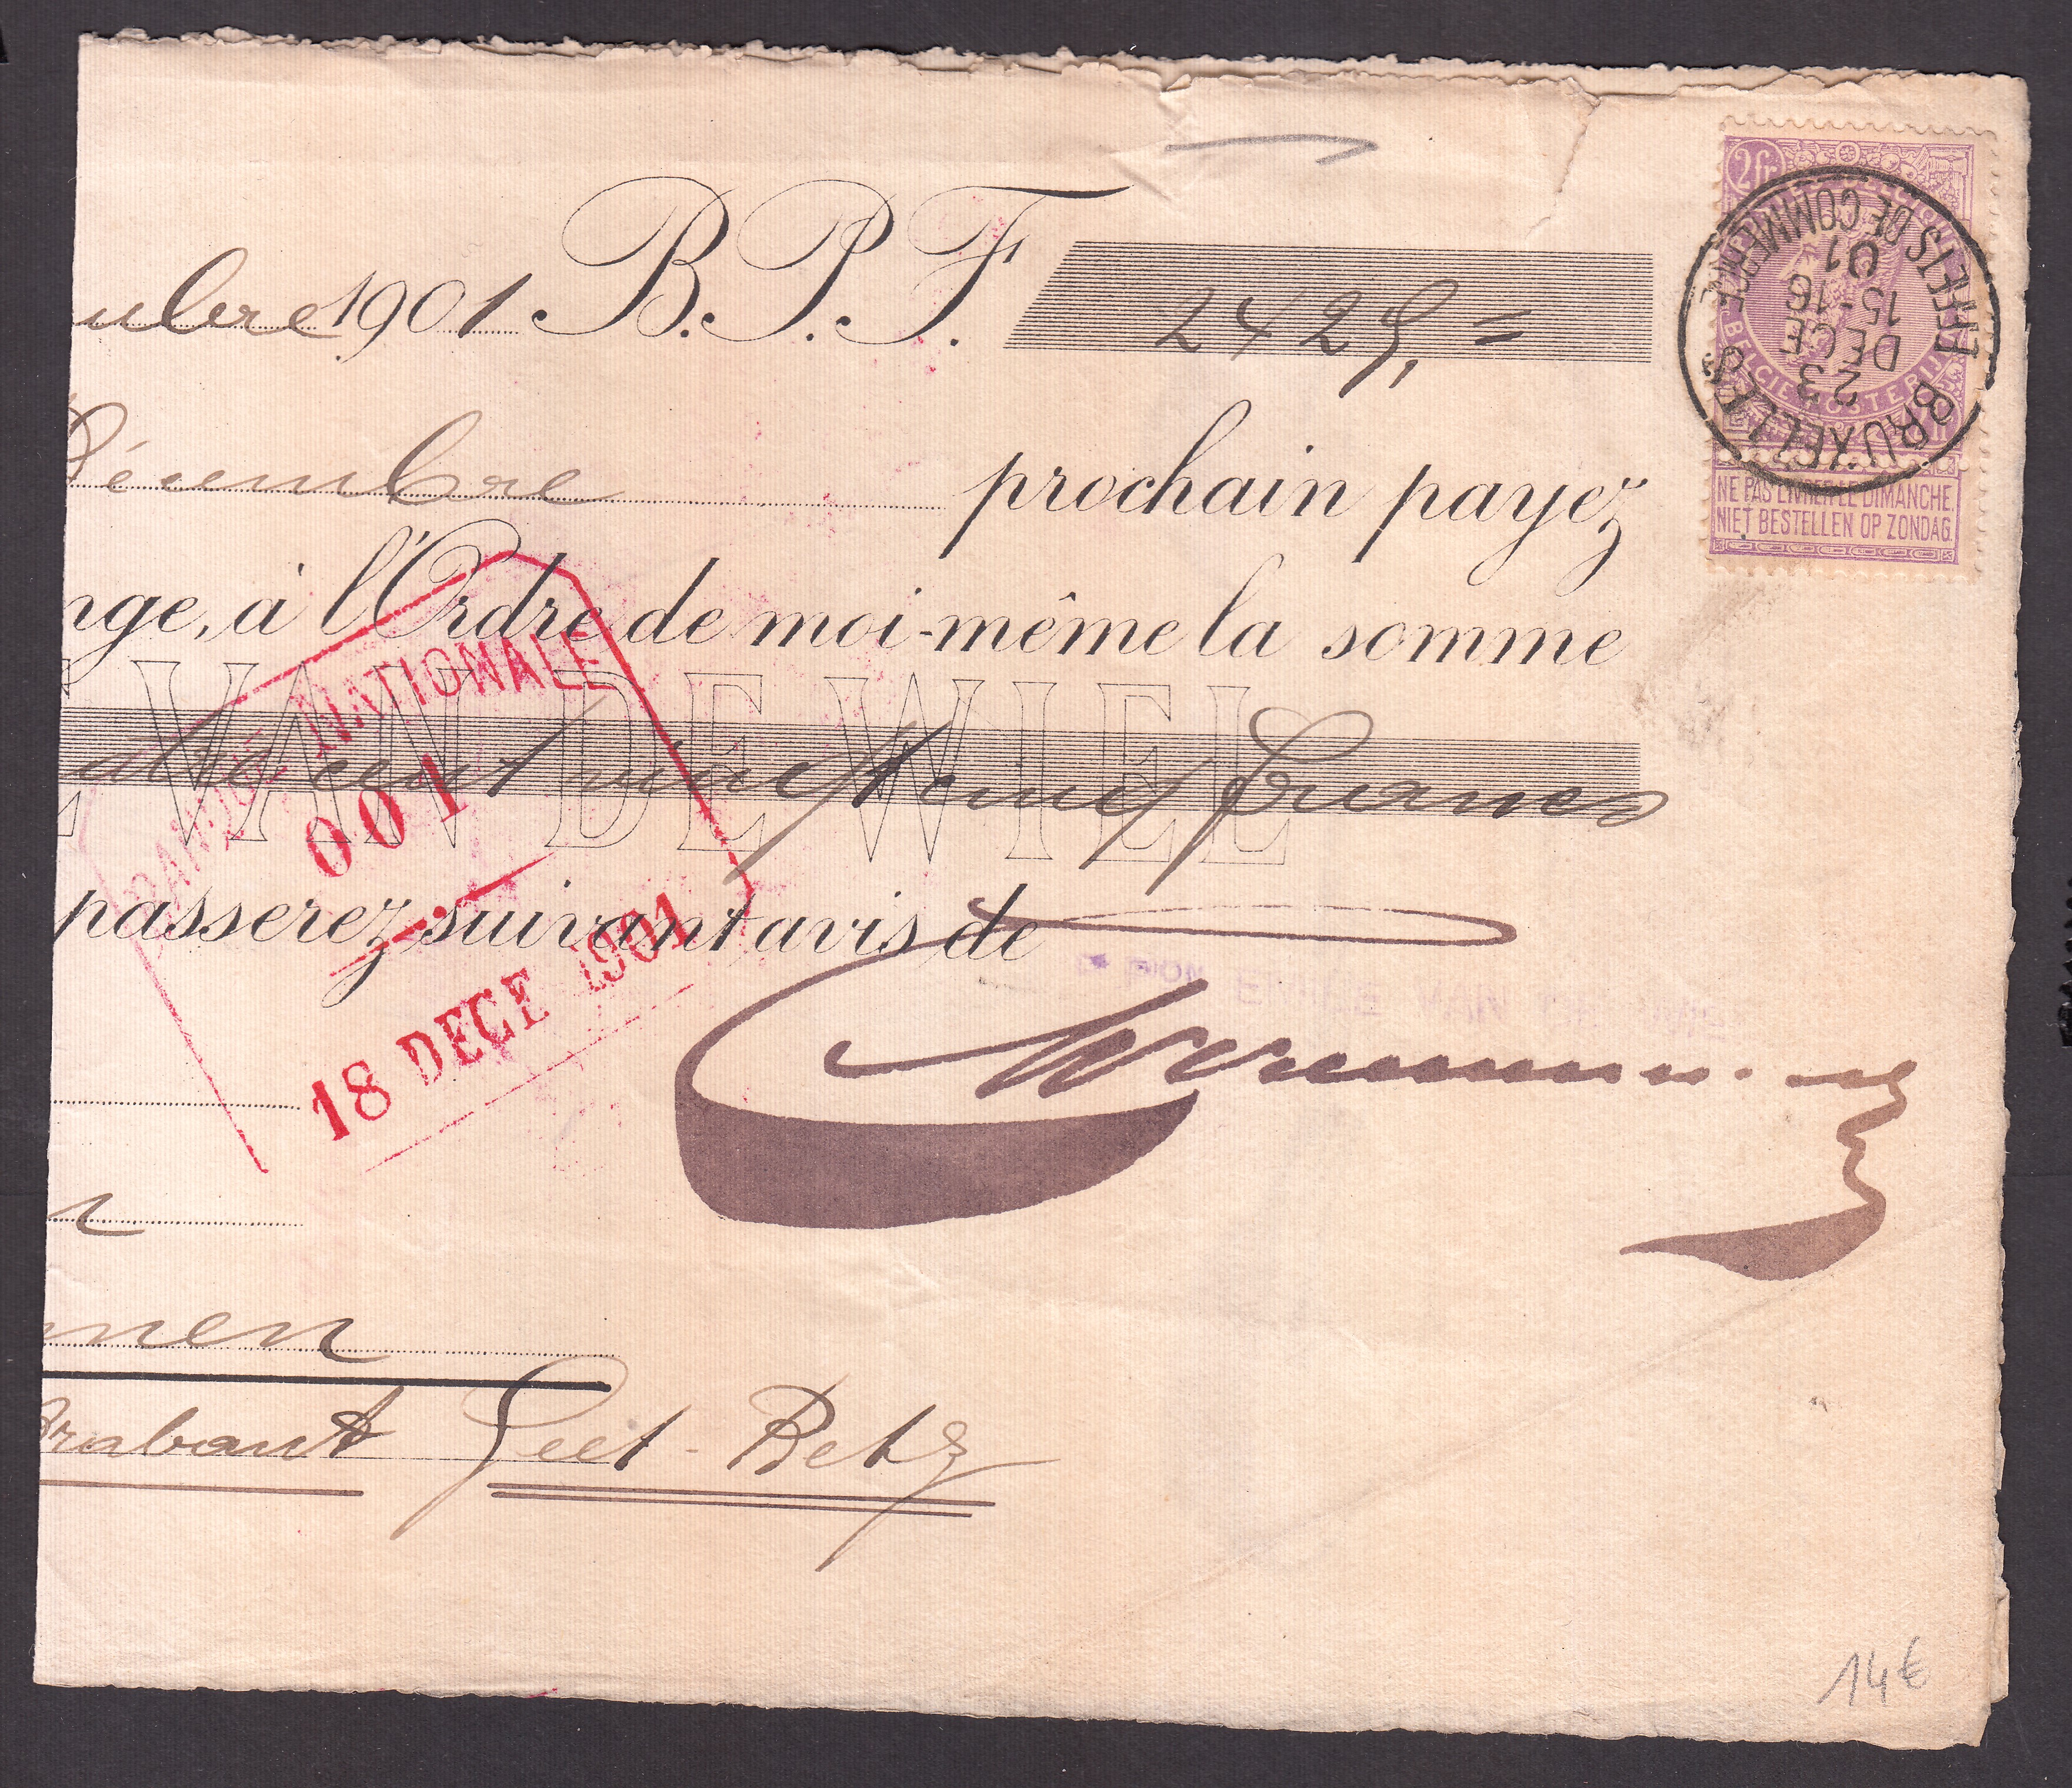 mbre 1901. B.P.F. 2425,=
Décembre prochain payez
nge, à l'Ordre de moi-même la somme
E VAN DE WIEL
cent vingt cinq francs
passerez suivant avis de
BANQUE NATIONALE
001
18 DECE 1901
nen
Brabant Geet-Betz
2fr
BELGIE POSTERIJEN
NE PAS LIVRER LE DIMANCHE.
NIET BESTELLEN OP ZONDAG.
BRUXELLES
23
DECE
15-16
01
EFFETS DE COMMERCE
14€